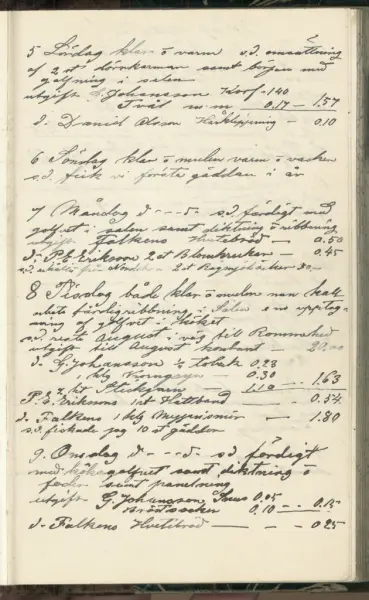 5 Lördag klar o varm s.d. omsättning
af 2 st dörrkarmar samt början med
golfning i salen
utgift G. Johansson Korf - 1.40
Tvål m.m. 0.17 - 1.57
d. Daniel Olsson Hårklippning - 0.10
6 Söndag klar o mulen varm o vacker
s.d. fick vi första gäddan i år
7 Måndag d - - - o - s.d. färdigt med
golfvet i salen samt diktning o ribbning
utgift Falkens Hvetebröd - 0.50
d. P.E. Eriksson 2 st Blomkrukor - 0.45
s.d. från 2 st
8 Tisdag både klar o mulen men kall
arbete färdigribbning i Salen o upptag-
ning af golfvet i Köket
s.d. reste August i väg till
utgift till August kontant - 20.00
d. G. Johansson ½ Tobak 0.23
1 klg 0.30
2 kt 1.10 - 1.63
P.E. Erikssons 1 st - 0.54
d. Falkens 1 klg - 1.80
s.d. fiskade jag 10 st gäddor
9. Onsdag d - - - o - s.d. färdigt
med köksgolfvet samt diktning o
samt panelning
utgift G. Johansson Snus 0.05
0.10 - 0.15
d. Falkens Hvetebröd - 0.25